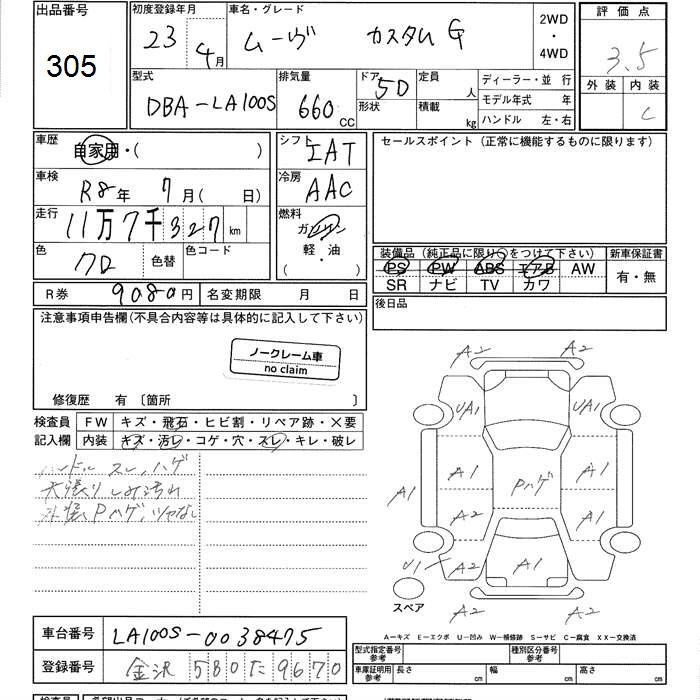 出品番号
305
初度登録年月
23 4月
車名・グレード
ムーヴ カスタム G
2WD
・
4WD
評価点
3.5
外装 内装
C
型式
DBA-LA100S
排気量
660 CC
ドア
5D
形状
定員
人
積載
kg
ディーラー・並 行
モデル年式 年
ハンドル 左・右
車歴
自家用・( )
シフト
IAT
セールスポイント (正常に機能するものに限ります)
車検
R8年 7月( 日)
冷房
AAC
走行
11万7千327km
燃料
ガソリン
軽・油
( ・ )
色
クロ
色替
色コード
装備品 (純正品に限り○をつけて下さい)
PS PW ABS エアB AW
SR ナビ TV カワ
新車保証書
有・無
R券 9080円
名変期限 月 日
後日品
注意事項申告欄(不具合内容等は具体的に記入して下さい)
ノークレーム車
no claim
修復歴 有 〔箇所 〕
検査員
記入欄
FW キズ・飛石・ヒビ割・リペア跡・×要
内装 キズ・汚レ・コゲ・穴・スレ・キレ・破レ
ハンドル スレ,ハゲ
天張りしみ汚れ
外装Pハゲ,ツヤなし
A2 A2
UA1 UA1
A1 A1 Pハゲ A1
A2 A1
U1 A2 A1 A2
A2 A2
スペア
A-キズ E-エクボ U-凹み W-補修跡 S-サビ C-腐食 XX-交換済
車台番号 LA100S-0038475
登録番号 金沢 580 た 9670
型式指定番号
参考
種別区分番号
参考
車庫証明用
参考
長さ cm 幅 cm 高さ cm